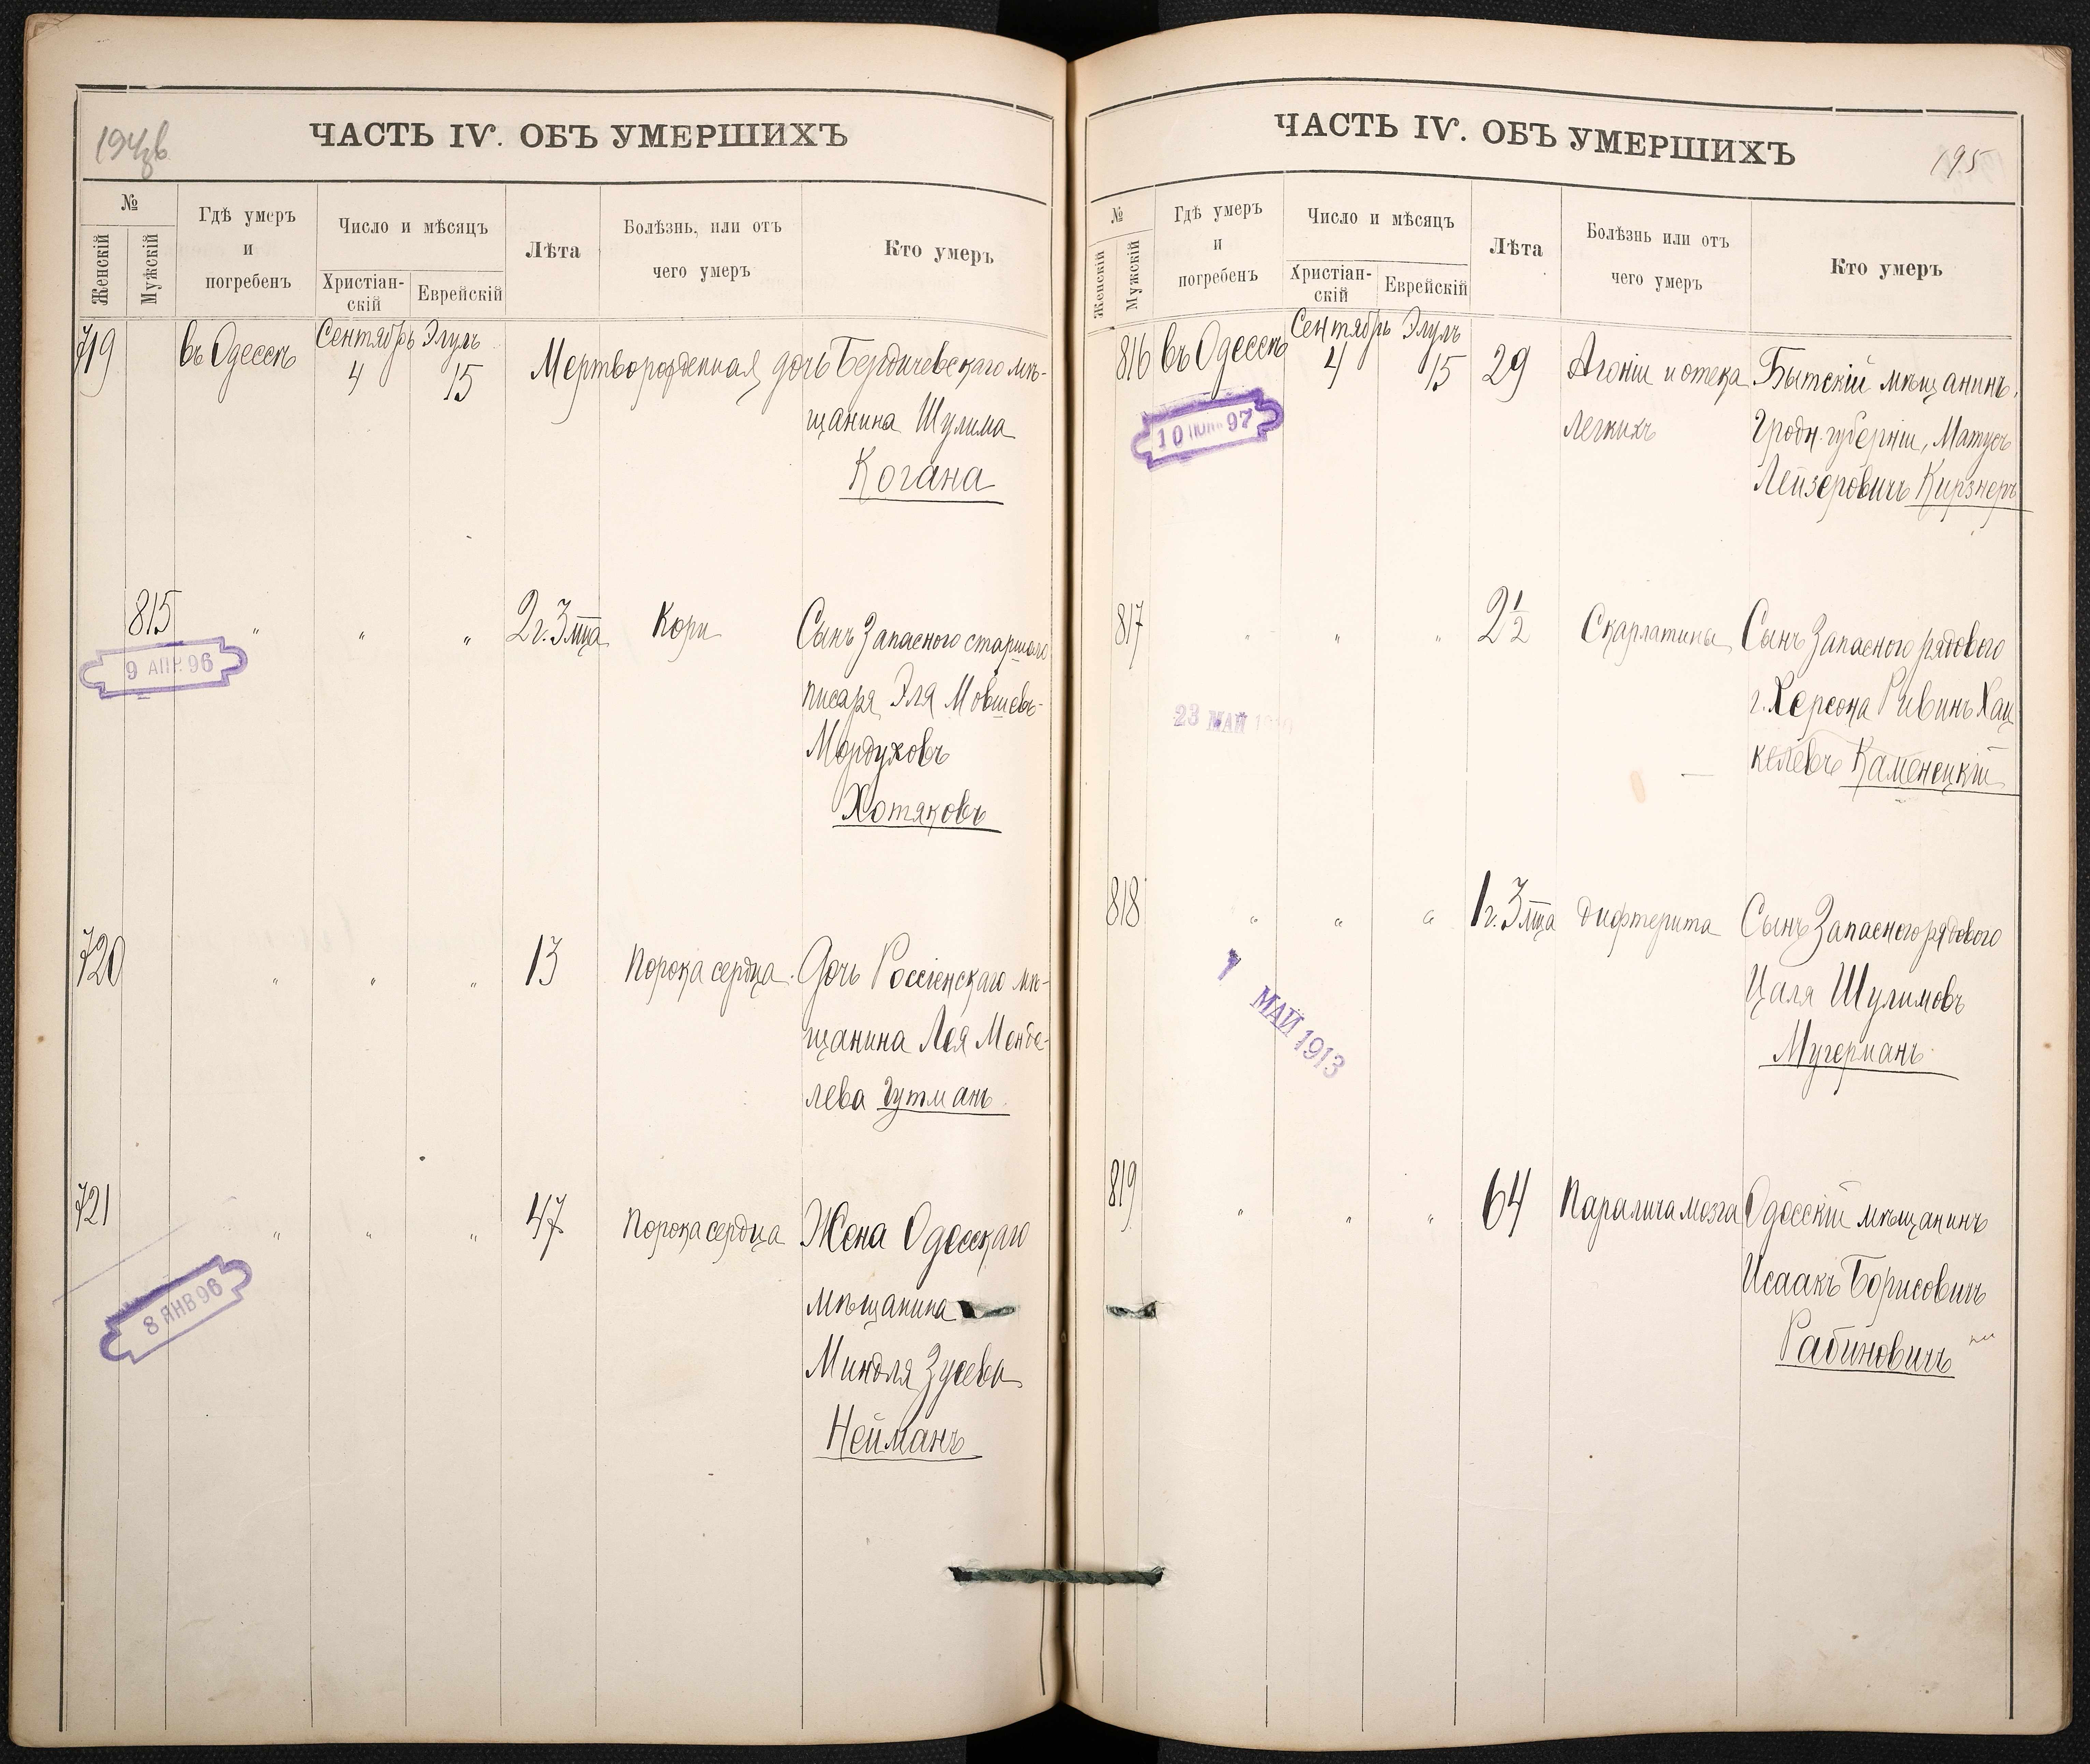 194об
ЧАСТЬ IV. ОБЪ УМЕРШИХЪ
№
Женскій
Мужскій
Гдѣ умеръ
и
погребенъ
Число и мѣсяцъ
Христіан-
скій
Еврейскій
Лѣта
Болѣзнь, или отъ
чего умеръ
Кто умеръ
719 въ Одессѣ Сентябрь 4 Элулъ 15 Мертворожденная дочь Бердичевскаго мѣ-
щанина Шулима
Когана
815 " " " 2 г. 3 м̅ца Кори Сынъ Запасного старшаго
писаря Эля Мовшевъ-
Мордуховъ
Хотяковъ
9 АПР. 96
720 " " " 13 Порока сердца. Дочь Россіенскаго мѣ-
щанина Лея Менде-
лева Гутманъ
721 " " " 47 Порока сердца Жена Одесскаго
мѣщанина
Миндля Зусева
Нейманъ
8 ЯНВ 96
ЧАСТЬ IV. ОБЪ УМЕРШИХЪ
195
№
Женскій
Мужскій
Гдѣ умеръ
и
погребенъ
Число и мѣсяцъ
Христіан-
скій
Еврейскій
Лѣта
Болѣзнь или отъ
чего умеръ
Кто умеръ
816 въ Одессѣ Сентябрь 4 Элулъ 15 29 Агоніи и отека Бытскій мѣщанинъ,
легкихъ Гродн. губерніи, Матусъ
Лейзеровичъ Кирзнеръ
10 ІЮН. 97
817 " " " 2½ Скарлатины Сынъ Запасного рядового
г. Херсона Ривинъ Хац
келевъ Каменецкій
23 МАЙ
818 " " " 1 г. 3 м̅ца Дифтерита Сынъ Запасного рядового
Цаля Шулимовъ
Мугерманъ
7 МАЙ 1913
819 " " " 64 Паралича мозга Одесскій мѣщанинъ
Исаакъ Борисовичъ
Рабиновичъ